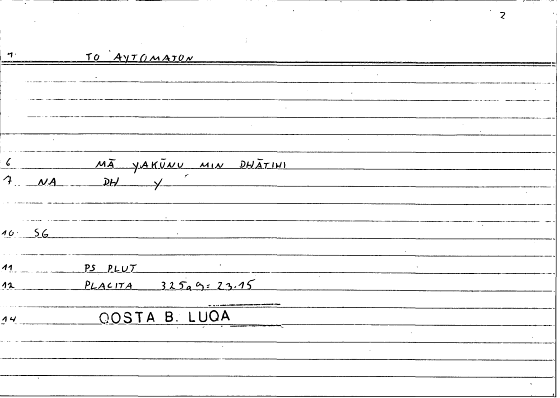 2
1. TO AYTOMATON
6 MĀ YAKŪNU MIN DHĀTIHI
7 NA DH Y
10. SG
11 PS PLUT
12 PLACITA 325a9 = 23.15
14 QOSTA B. LUQA